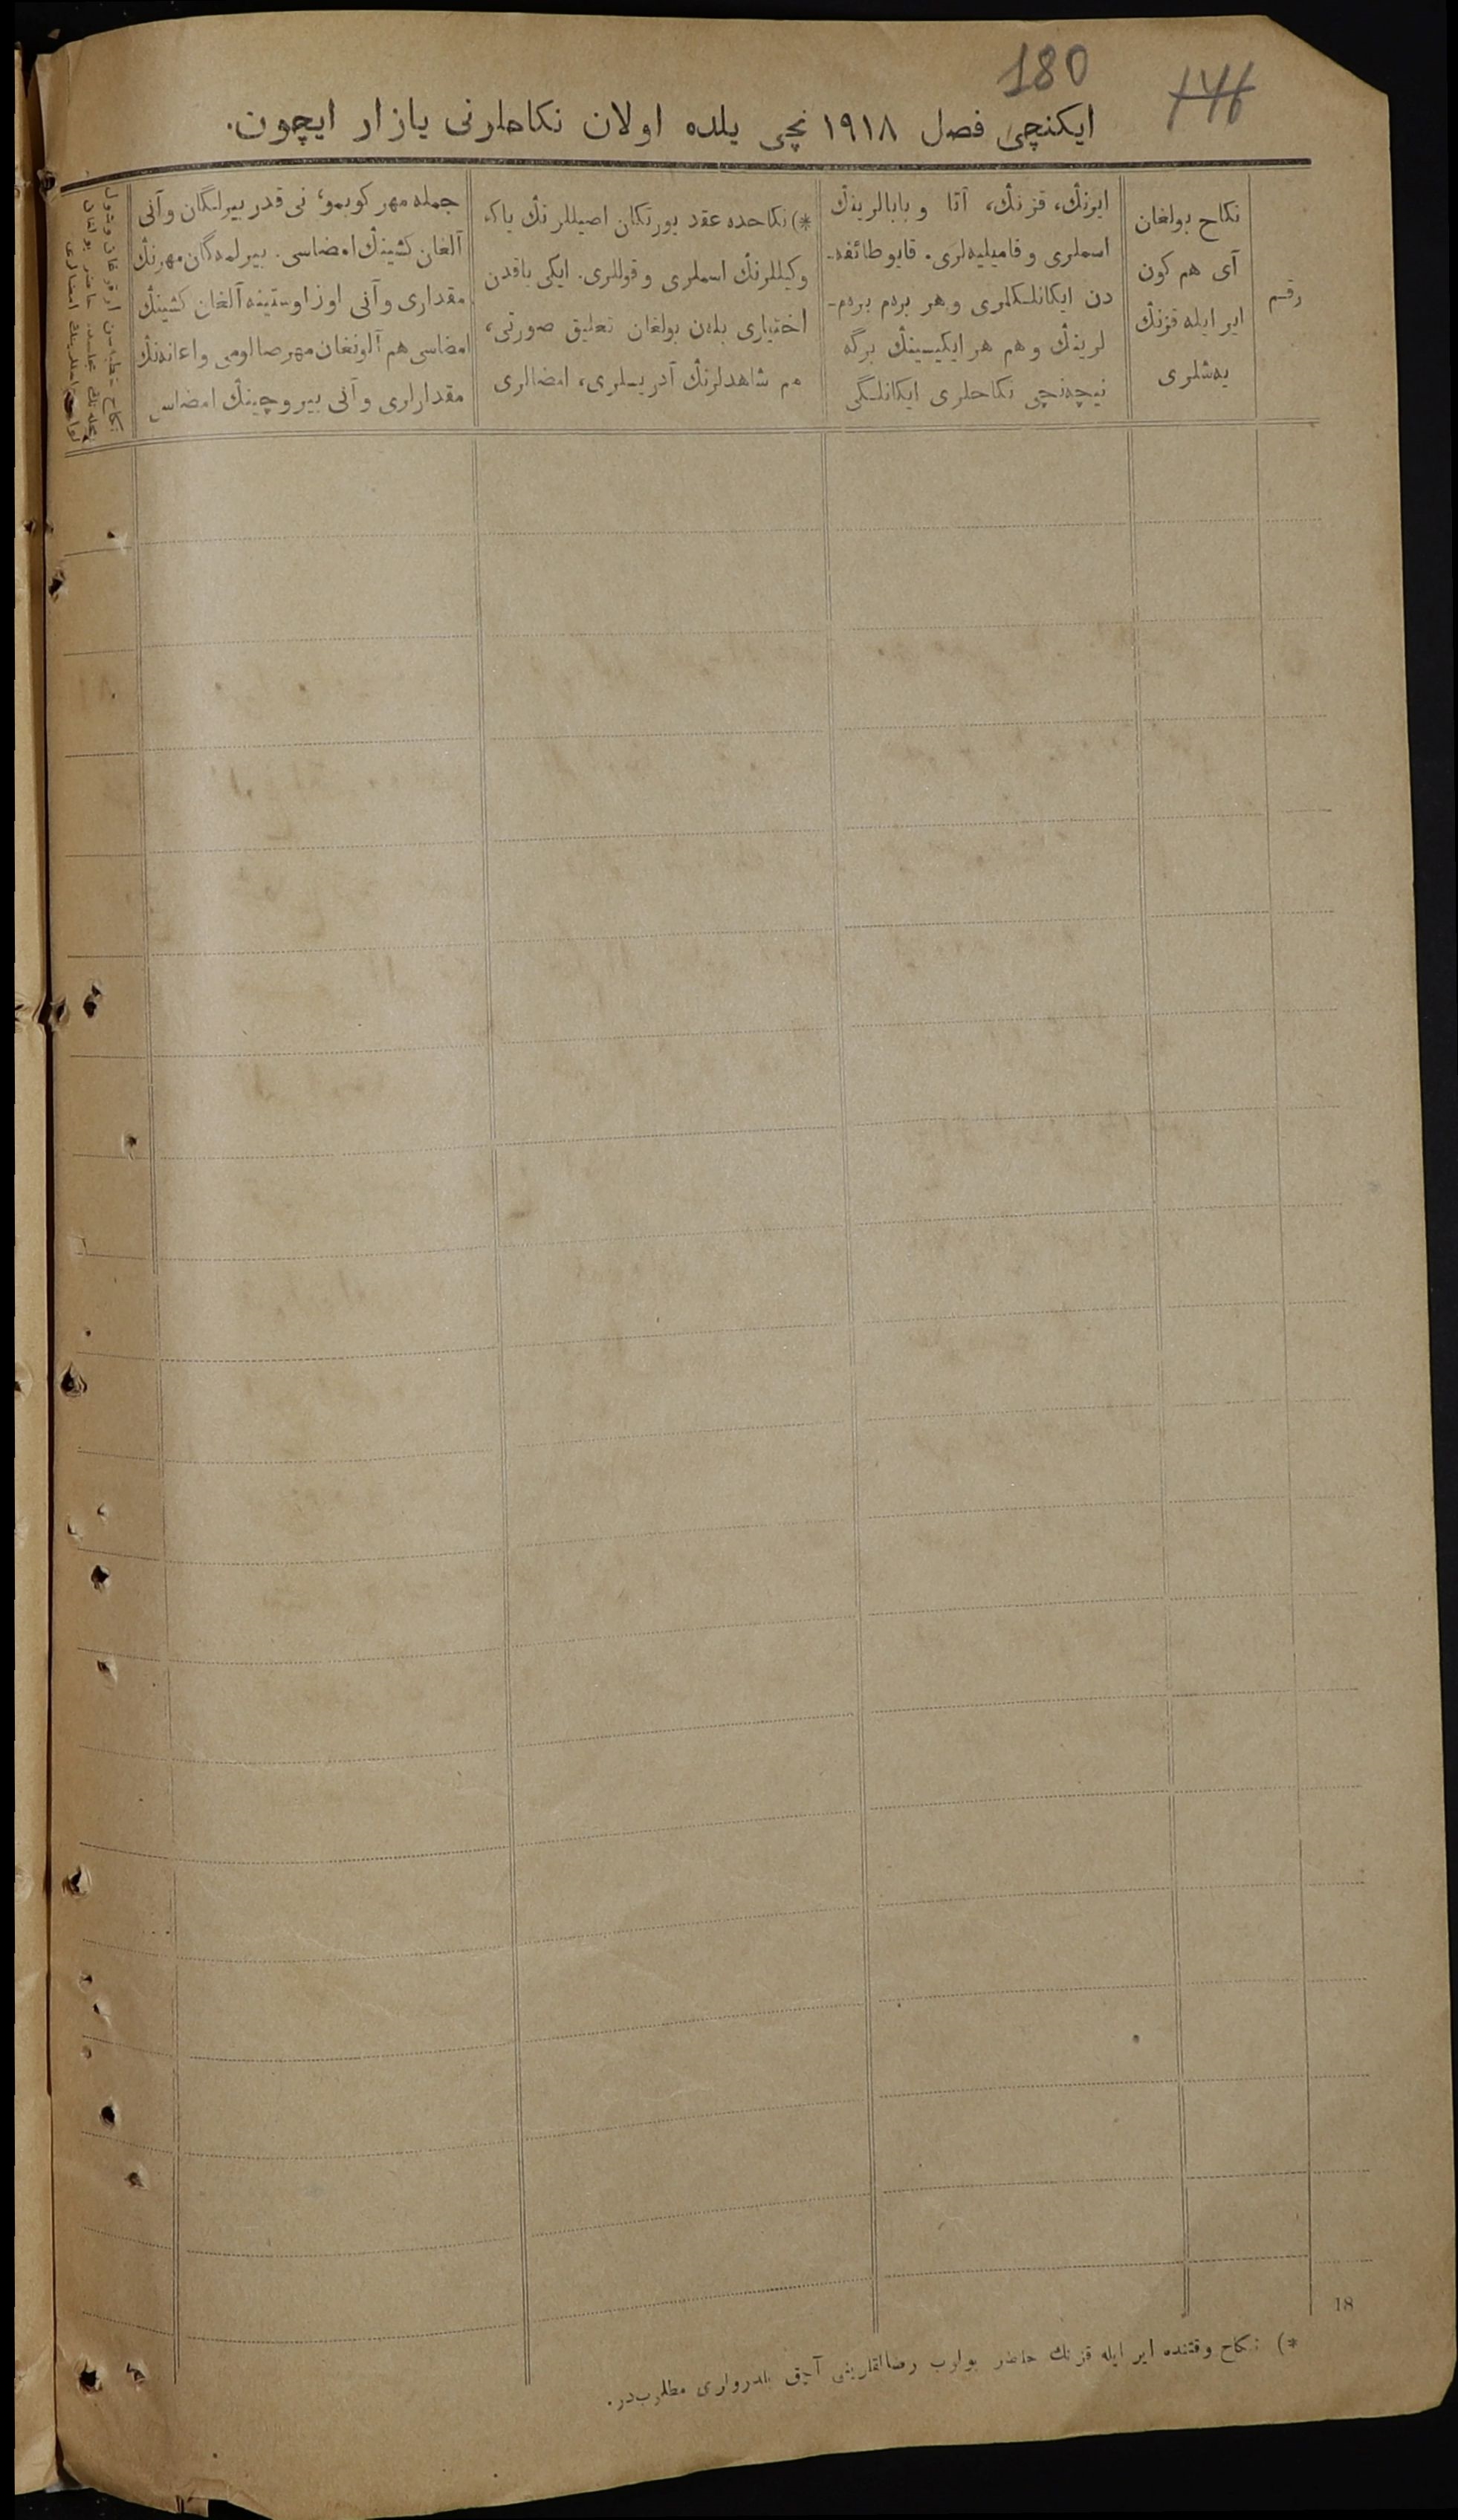 180
146
ایکنچی فصل ١٩١٨ نچی یلده اولان نکاحلرنی یازار ایچون.
رقم
نکاح بولغان
آی هم کون
ایر ایله قزنڭ
یەشلری
ایرنڭ، قزنڭ، آتا و بابالرینڭ
اسملری و فامیلیەلری. قایو طائفه-
دن ایکانلکلری و هر بردم بردم-
لرینڭ و هم هر ایکیسینڭ برگه
نیچەنچی نکاحلری ایکانلگی
*) نکاحده عقد یورتکان اصیللرنڭ یاکه
وکیللرنڭ اسملری و قوللری. ایکی یاقدن
اختیاری بلەن بولغان تعلیق صورتی،
هم شاهدلرنڭ آدریسلری، امضالری
جمله مهر کوبمو، نی قدر بیرلگان و آنی
آلغان کشینڭ امضاسی. بیرلمەگان مهرنڭ
مقداری و آنی اوز اوستینه آلغان کشینڭ
امضاسی هم آلونغان مهر صالومی و اعانەنڭ
مقدارلری و آنی بیروچینڭ امضاسی
نکاح خطبەسن اوقوغان وشول
محلەنڭ مجلسده حاضر بولغان
امضالری
18
*) نکاح وقتنده ایر ایله قزنڭ حاضر بولوب رضالقلرینی آچق بلدرولری مطلوبدر.